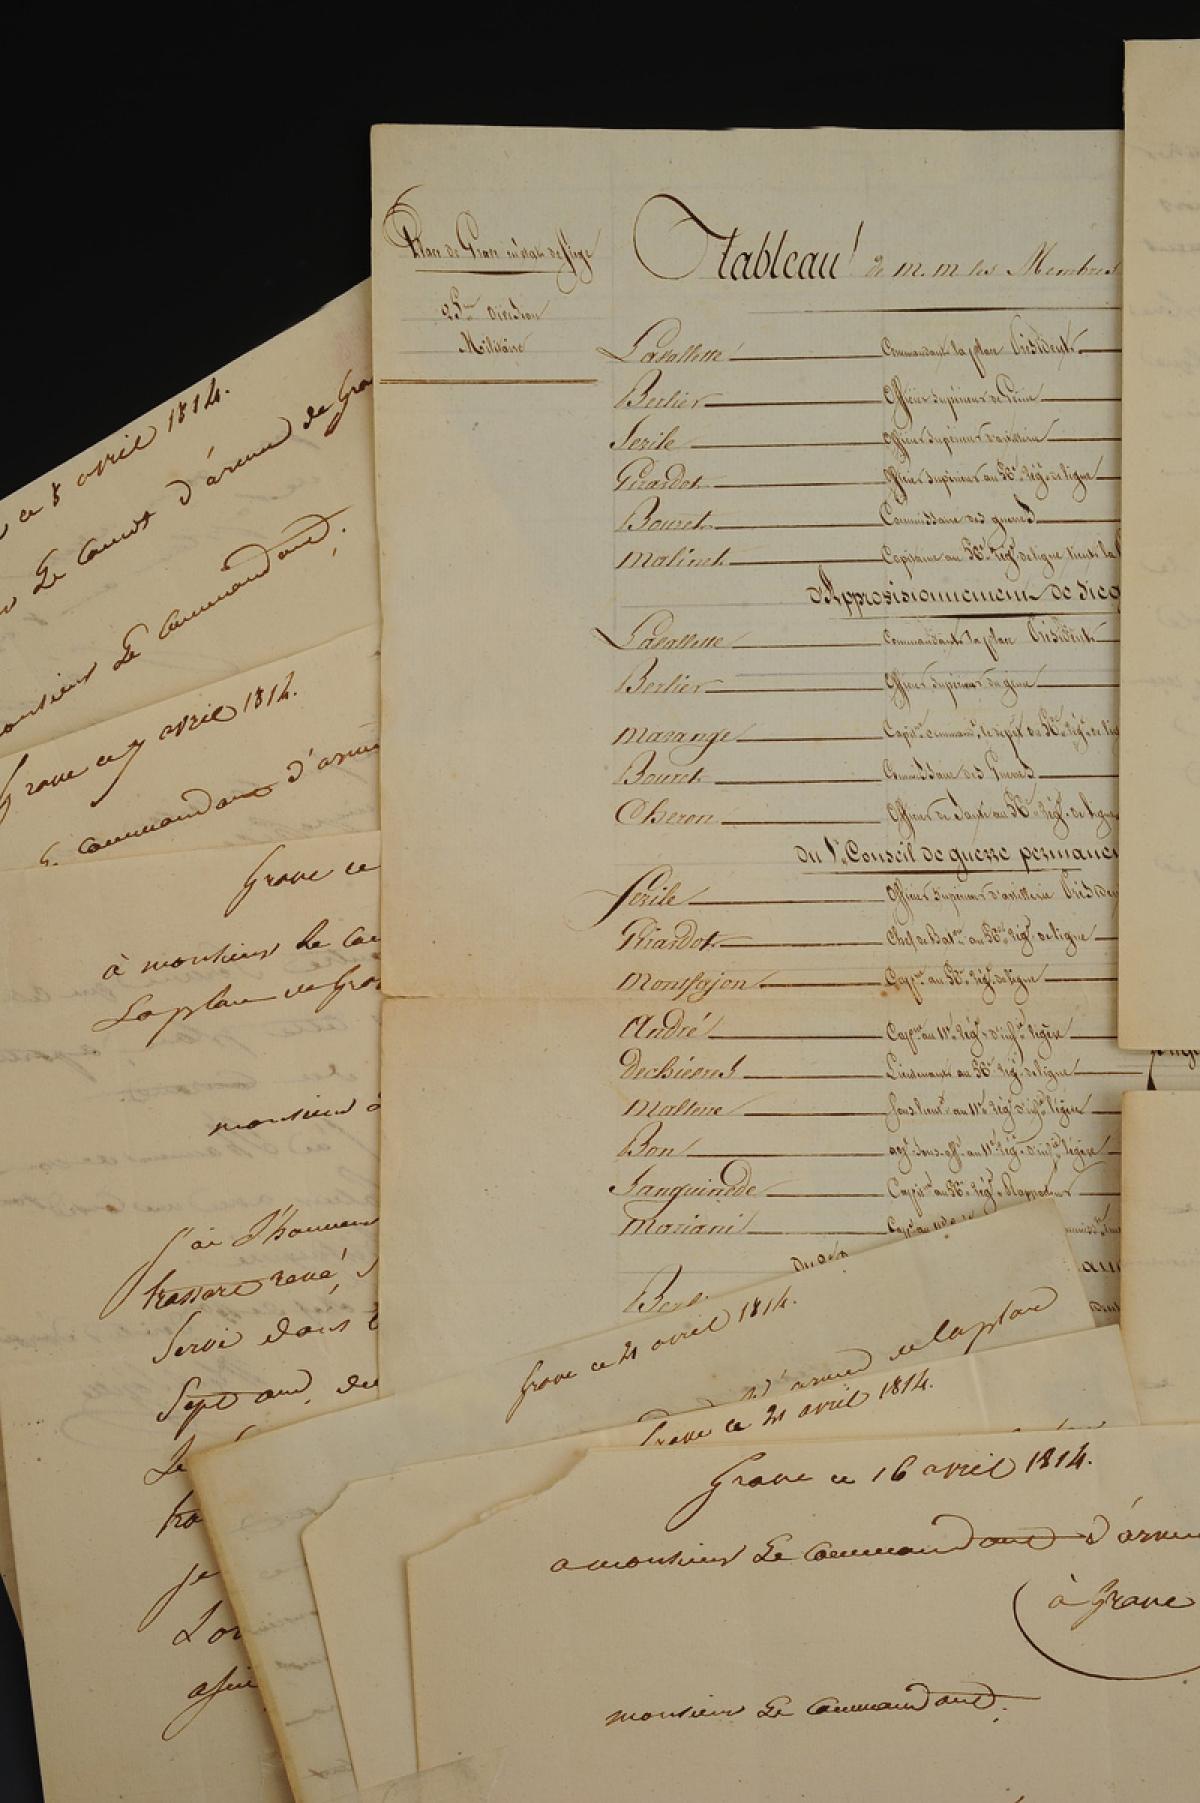 Place de Grave en état de Siège
25me Division
Militaire
Tableau de M.M les Membres
Lasallette Commandant la place Président
Berlier Officier Supérieur de Génie
Sezile Officier Supérieur d'artillerie
Girardot Officier Supérieur au 56e Régt de ligne
Bouret Commissaire des guerres
Malinet Capitaine au 56e Régt de ligne
d'Approvisionnement de Siège
Lasallette Commandant la place Président
Berlier Officier Supérieur du génie
Marange Capitne command. le dépôt du 56e Régt de
Bouret Commissaire des Guerres
Cheron Officier de Santé au 56e Régt de ligne
du 1er Conseil de guerre permanen
Sezile Officier Supérieur d'artillerie Présiden
Girardot Chef de Baton au 56e Régt de ligne
Montfajon Capne au 56e Régt de ligne
André Capne au 11e Régt d'infie légère
Dechiesnes Lieutenant au 56e Régt de ligne
Maltene Sous lieut. au 11e Régt d'infie légère
Bon adjt Sous-offr au 11e Régt d'infie légère
Sanguinede Capitne au 56e Régt Rapporteur
Mariani Capne au
Berl
ce 8 avril 1814.
Le Comdt d'armes de Gra
monsieur Le Commandant;
Grave ce 9 avril 1814.
Commandant d'armes
Grave ce
à monsieur le Co
La place de Gra
monsieur
j'ai l'honneur
Servi dans
Sept ans, de
je
Grave ce 21 avril 1814.
d'armes de la place
Grave ce 21 avril 1814.
Grave ce 16 avril 1814.
a monsieur Le Commandant d'arme
à Grave
monsieur Le Commandant;